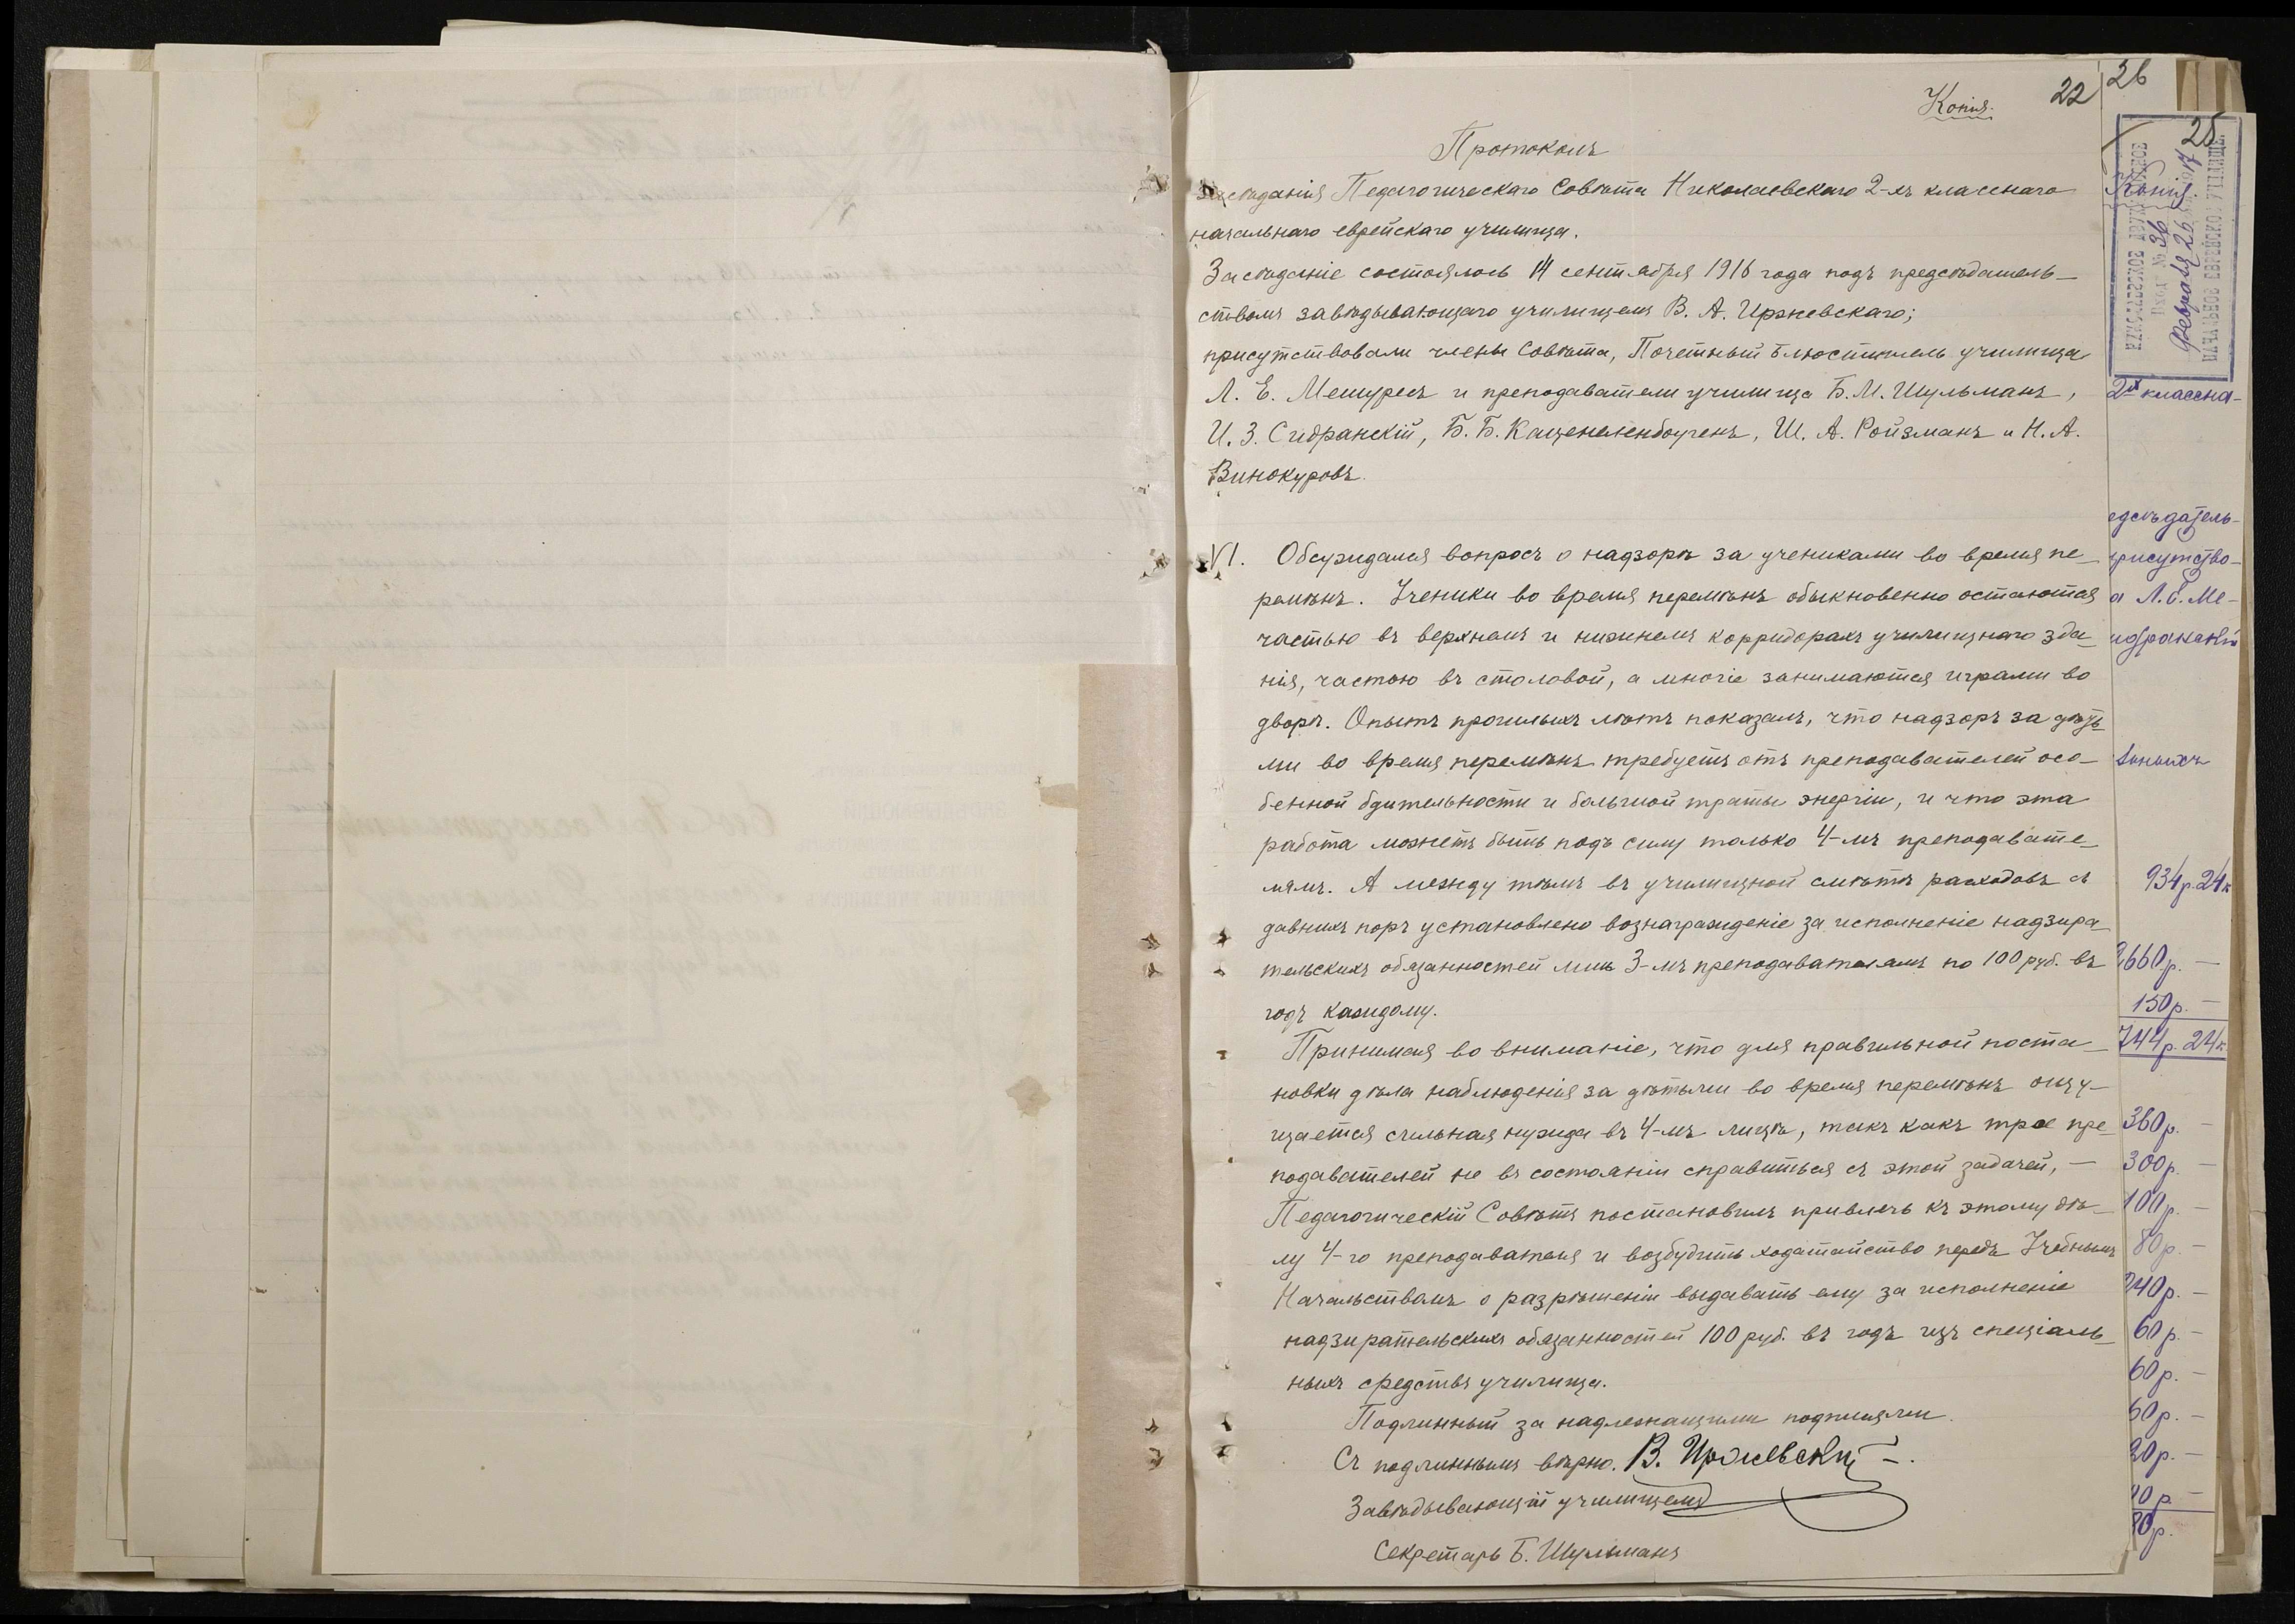 Копія.
22
Протоколъ
засѣданія Педагогическаго Совѣта Николаевскаго 2-хъ класснаго
начальнаго еврейскаго училища.
Засѣданіе состоялось 14 сентября 1916 года подъ предсѣдатель-
ствомъ завѣдывающаго училищемъ В. А. Иржевскаго;
присутствовали члены Совѣта, Почетный Блюститель училища
Л. Е. Мешуресъ и преподаватели училища Б. М. Шульманъ,
И. З. Сидранскій, Б. Б. Каценеленбоугенъ, Ш. А. Ройзманъ и Н. А.
Винокуровъ.
VI. Обсуждался вопросъ о надзорѣ за учениками во время пе-
ремѣнъ. Ученики во время перемѣнъ обыкновенно остаются
частью въ верхнемъ и нижнемъ корридорахъ училищнаго зда-
нія, частью въ столовой, а многіе занимаются играми во
дворѣ. Опытъ прошлыхъ лѣтъ показалъ, что надзоръ за дѣть-
ми во время перемѣнъ требуетъ отъ преподавателей осо-
бенной бдительности и большой траты энергіи, и что эта
работа можетъ быть подъ силу только 4-мъ преподавате-
лямъ. А между тѣмъ въ училищной смѣтѣ расходовъ съ
давнихъ поръ установлено вознагражденіе за исполненіе надзира-
тельскихъ обязанностей лишь 3-мъ преподавателямъ по 100 руб. въ
годъ каждому.
Принимая во вниманіе, что для правильной поста-
новки дѣла наблюденія за дѣтьми во время перемѣнъ ощу-
щается сильная нужда въ 4-мъ лицѣ, такъ какъ трое пре-
подавателей не въ состояніи справиться съ этой задачей, —
Педагогическій Совѣтъ постановилъ привлечь къ этому дѣ-
лу 4-го преподавателя и возбудить ходатайство передъ Учебнымъ
Начальствомъ о разрѣшеніи выдавать ему за исполненіе
надзирательскихъ обязанностей 100 руб. въ годъ изъ спеціаль-
ныхъ средствъ училища.
Подлинный за надлежащими подписями.
Съ подлиннымъ вѣрно. В. Иржевскій
Завѣдывающій училищемъ
Секретарь Б. Шульманъ
26
25
Копія.
№ 36
Февраля 26
НАЧАЛЬНОЕ ЕВРЕЙСКОЕ УЧИЛИЩЕ
2хъ классна-
едсѣдатель-
присутство-
а Л. Е. Ме-
идранскій
934 р. 24 к
2660 р. —
150 р. —
744 р. 24 к
360 р. —
300 р. —
100 р. —
80 р. —
240 р. —
60 р. —
60 р. —
60 р. —
20 р. —
10 р. —